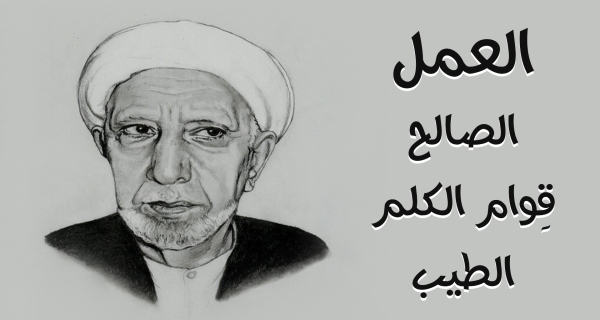 العمل
الصالح
قِوام الكلم
الطيب